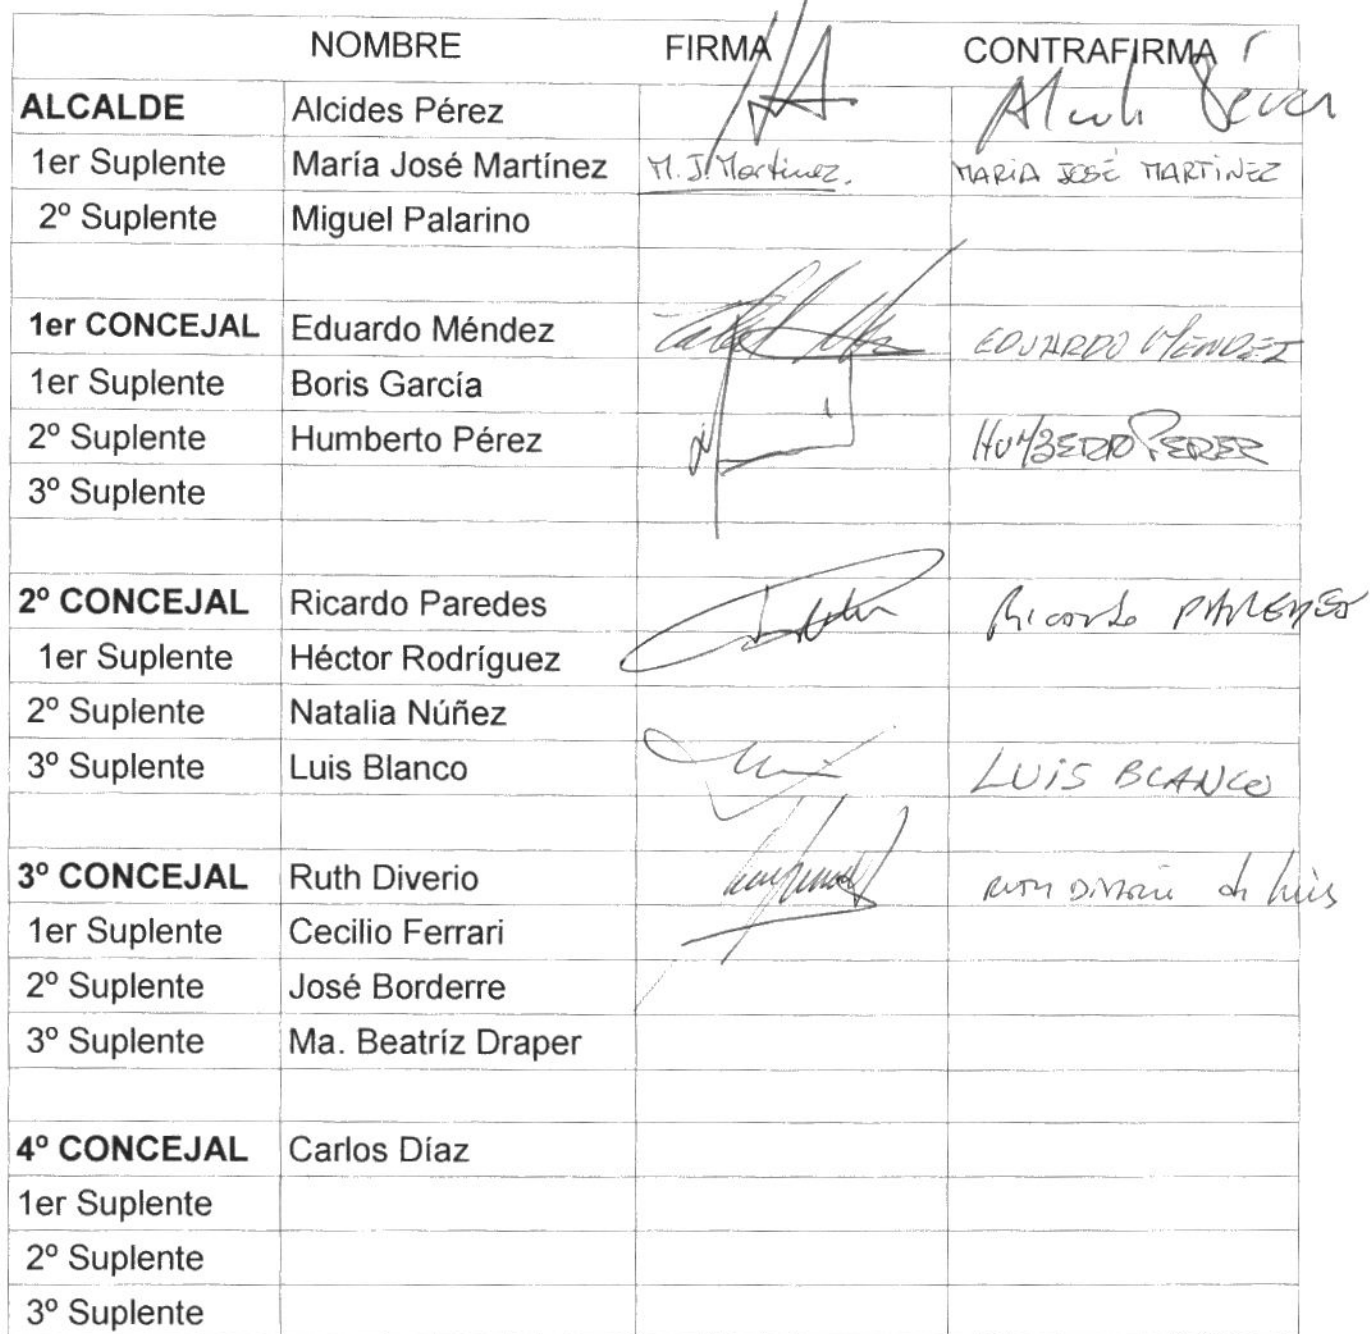 NOMBRE FIRMA CONTRAFIRMA
ALCALDE Alcides Pérez
1er Suplente María José Martínez M. J. Martinez. MARIA JOSÉ MARTINEZ
2º Suplente Miguel Palarino
1er CONCEJAL Eduardo Méndez EDUARDO MENDEZ
1er Suplente Boris García
2º Suplente Humberto Pérez HUMBERTO PEREZ
3º Suplente
2º CONCEJAL Ricardo Paredes Ricardo PAREDES
1er Suplente Héctor Rodríguez
2º Suplente Natalia Núñez
3º Suplente Luis Blanco LUIS BLANCO
3º CONCEJAL Ruth Diverio
1er Suplente Cecilio Ferrari
2º Suplente José Borderre
3º Suplente Ma. Beatríz Draper
4º CONCEJAL Carlos Díaz
1er Suplente
2º Suplente
3º Suplente